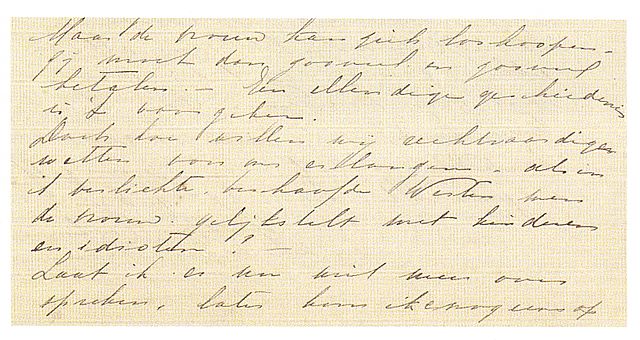 Maar de vrouw kan zich loskoopen -
zij moet dan zooveel en zooveel
betalen. - Een ellendige geschiedenis
is 't voor
Doch hoe willen wij rechtvaardigen
wetten voor ons erlangen, als in
't verlichte, beschaafde Westen men
de vrouw gelijkstelt met kinderen
en idioten? -
Laat ik er nu niet meer over
spreken, later kom ik er nog eens op